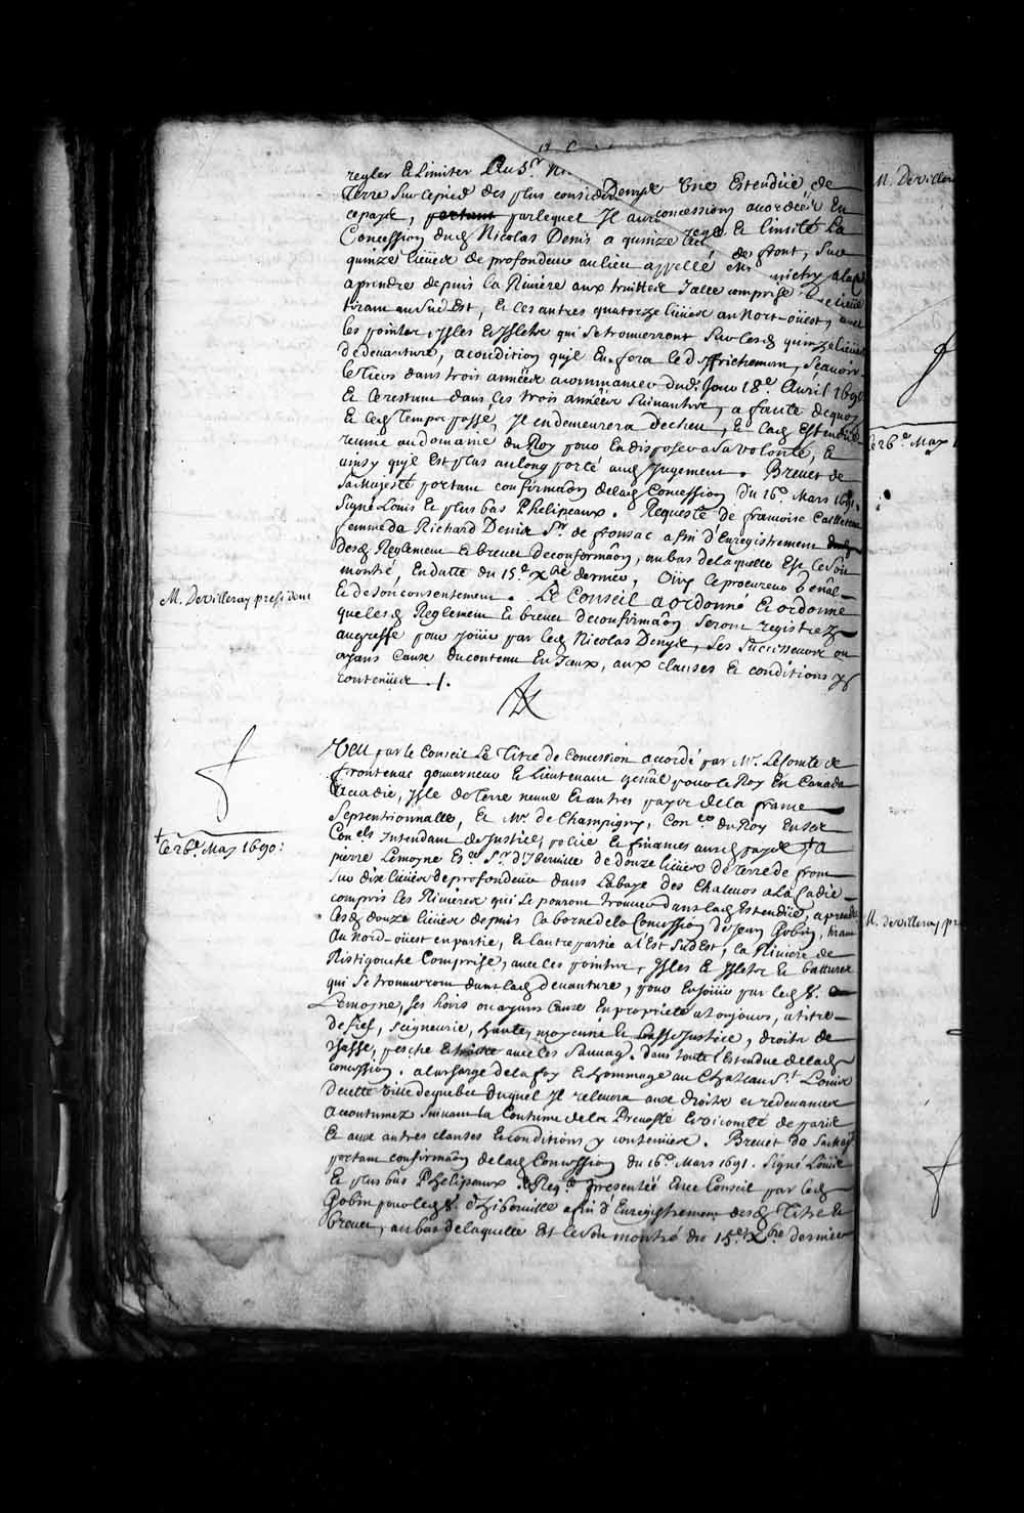 regler & limiter Au Sr
Terre Sur le pied des plus considé Denys Une Estendüe de
ce païs, portant par lequel Il aura concessions accordées En
Concession dud Nicolas Denis a quinze de front, Sur
quinze lieües de profondeur au lieu appellé
a prendre depuis la Riviere aux truittes Icelle comprise
tirant au Sud Est, & les autres quatorze lieües au Nort-oüest, avec
les pointes, Isles & Isletes qui Se trouverront Sur lesd quinze lieües
de devanture, a condition qu'il En fera le deffrichement, Sçavoir
le Tiers dans trois années a commancer dud. Jour 18e Avril
& le restant dans les trois années Suivantes, a faute de quoy
& led Temps passé, Il en demeurera decheu, & lad Estendüe
reunie au domaine du Roy pour En disposer a Sa volonté, &
ainsy qu'il Est plus au long porté aud Jugement. Brevet de
Sa Majesté portant confirmaõn de lad Concession du 16e Mars 1691.
Signé Loüis & plus bas Phelipeaux. Requeste de francoise Cailleteau
femme de Richard Denis Sr de fronsac afin d'Enregistrement
Desd Reglement & brevet de confirmaõn, au bas de laquelle Est le Soit
montré, En datte du 15e Xbre dernier, Oüy le procureur genãl
M. De Villeray president
& de Son consentement. Le Conseil a ordonné & ordonne
que lesd Reglement & brevet de confirmaõn Seront registrez
au greffe pour Joüir par led Nicolas Denys, Ses Successeurs ou
ayans Cause du contenu En Iceux, aux clauses & conditions y
contenües ./.
Veu par le Conseil Le Titre de Concession accordé par Mr. Le Comte de
frontenac gouverneur & Lieutenant genãl pour le Roy En Canada
Acadie, Isle de Terre neuve & autres payis de la france
Septentrionnalle, & Mr. de Champigny, Coner du Roy En Ses
Conels Intendant de Justice, police & finances aud payis A
+ Ce 26e May 1690:
pierre Lemoyne Ecer Sr d'Iberville de douze lieües de Terre de front
Sur dix lieües de profondeur dans la baye des Chaleurs a La Cadie
compris les Rivieres qui Se pourront trouver dans lad Estendüe, a prendre
lesd douze lieües depuis la borne de la Concession de Jean Gobin, tirant
Au Nord-oüest en partie, & l'autre partie a l'Est Sud Est, la Riviere de
Ristigouche Comprise, avec les pointes, Isles & Isletes & battures
qui Se trouveront dans lad devanture, pour En joüir par led S.
Lemoyne, Ses hoirs ou ayans Cause En propriété a toujours, a titre
de fief, Seigneurie, haute, moyenne & basse Justice, droits de
chasse, pesche & traitte avec les Sauvag. dans toute l'Estendue de lad
concession. a la charge de la foy & hommage au Chateau St Louis
de cette ville de quebec duquel Il relevera aux droits et redevances
Accoutumez Suivant la Coutume de la Prevosté & vicomté de paris
& aux autres clauses & conditions y contenües. Brevet de Sa Maj
portant confirmaõn de lad Concession du 16e Mars 1691. Signé Loüis
& plus bas Phelipeaux presentée Au Conseil par led
Gobin pour led S. d'hiberville afin d'Enregistrement desd Titre &
brevet, au bas de laquelle Est le Soit montré du 15e Xbre dernier
M. De Viller
Ce 26e May 1
M. de Villeray pr